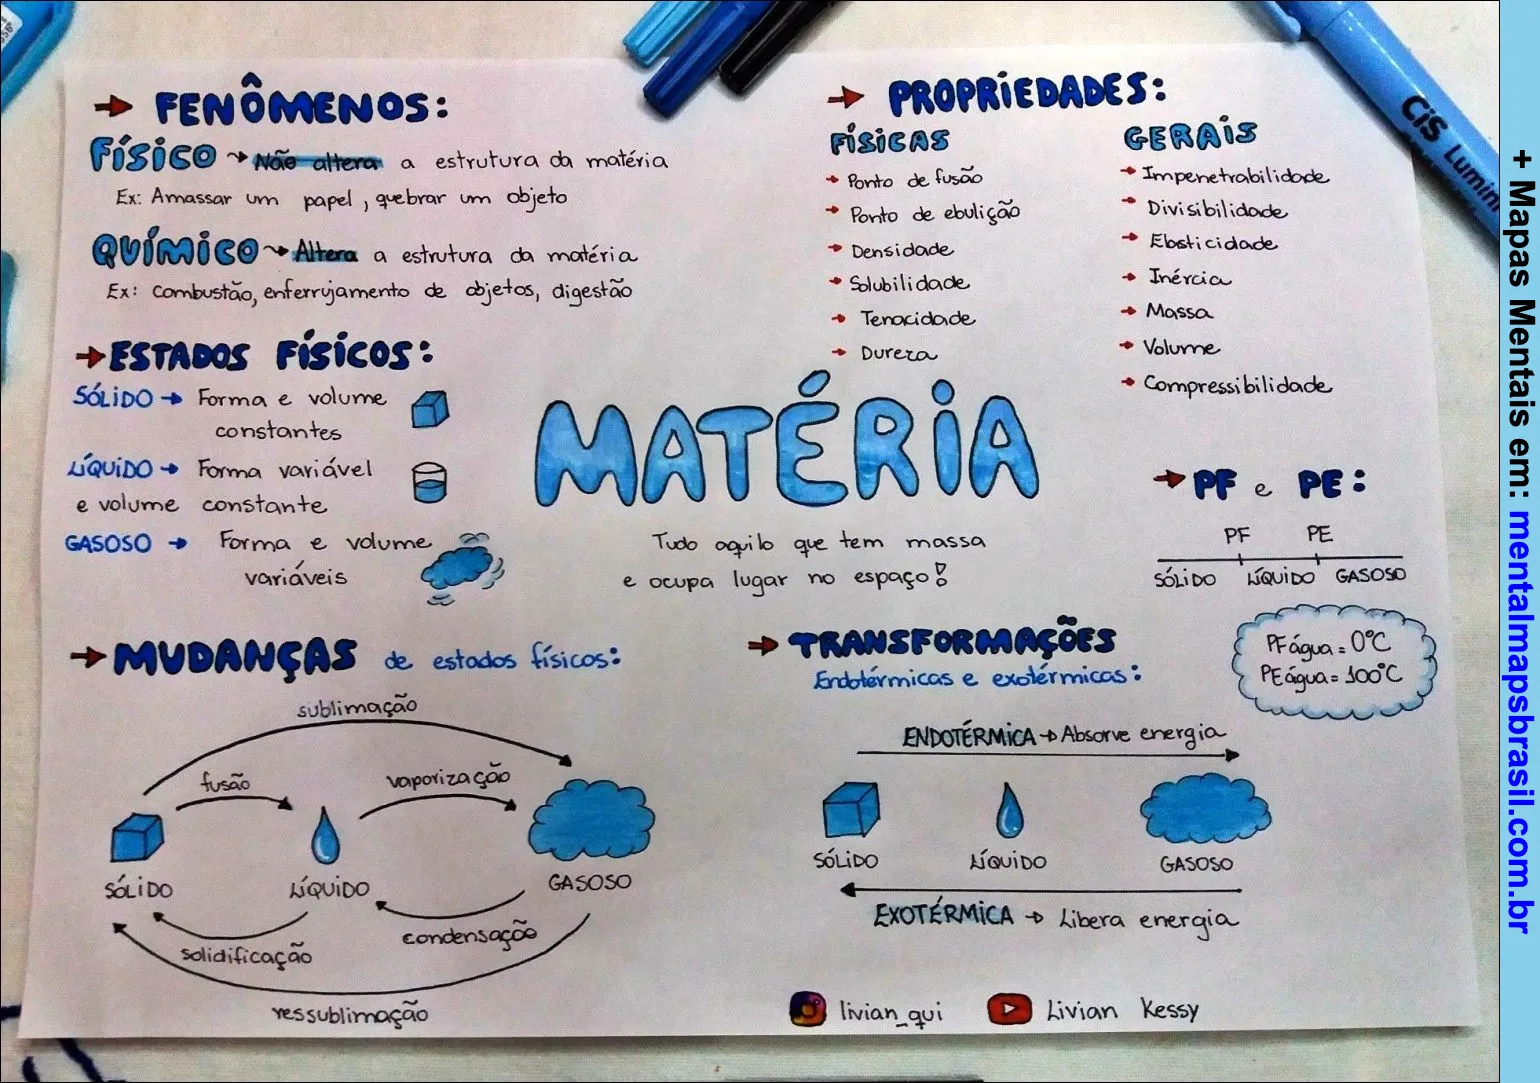 → FENÔMENOS:
FÍSICO → Não altera a estrutura da matéria
Ex: Amassar um papel, quebrar um objeto
QUÍMICO → Altera a estrutura da matéria
Ex: combustão, enferrujamento de objetos, digestão
→ ESTADOS FÍSICOS:
SÓLIDO → Forma e volume
constantes
LÍQUIDO → Forma variável
e volume constante
GASOSO → Forma e volume
variáveis
MATÉRIA
Tudo aquilo que tem massa
e ocupa lugar no espaço!
→ PROPRIEDADES:
FÍSICAS
→ Ponto de fusão
→ Ponto de ebulição
→ Densidade
→ Solubilidade
→ Tenacidade
→ Dureza
GERAIS
→ Impenetrabilidade
→ Divisibilidade
→ Elasticidade
→ Inércia
→ Massa
→ Volume
→ Compressibilidade
→ PF e PE:
PF PE
SÓLIDO LÍQUIDO GASOSO
PF água = 0°C
PE água = 100°C
→ MUDANÇAS de estados físicos:
sublimação
fusão
vaporização
SÓLIDO
LÍQUIDO
GASOSO
solidificação
condensação
ressublimação
→ TRANSFORMAÇÕES
Endotérmicas e exotérmicas:
ENDOTÉRMICA → Absorve energia
SÓLIDO
LÍQUIDO
GASOSO
EXOTÉRMICA → Libera energia
livian_qui
Livian Kessy
CiS Lumini
+ Mapas Mentais em: mentalmapsbrasil.com.br